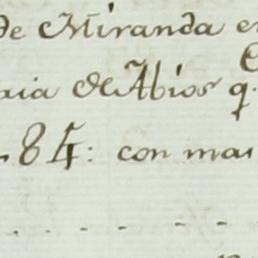 de Miranda e
aia de Abios q.
84: con mai